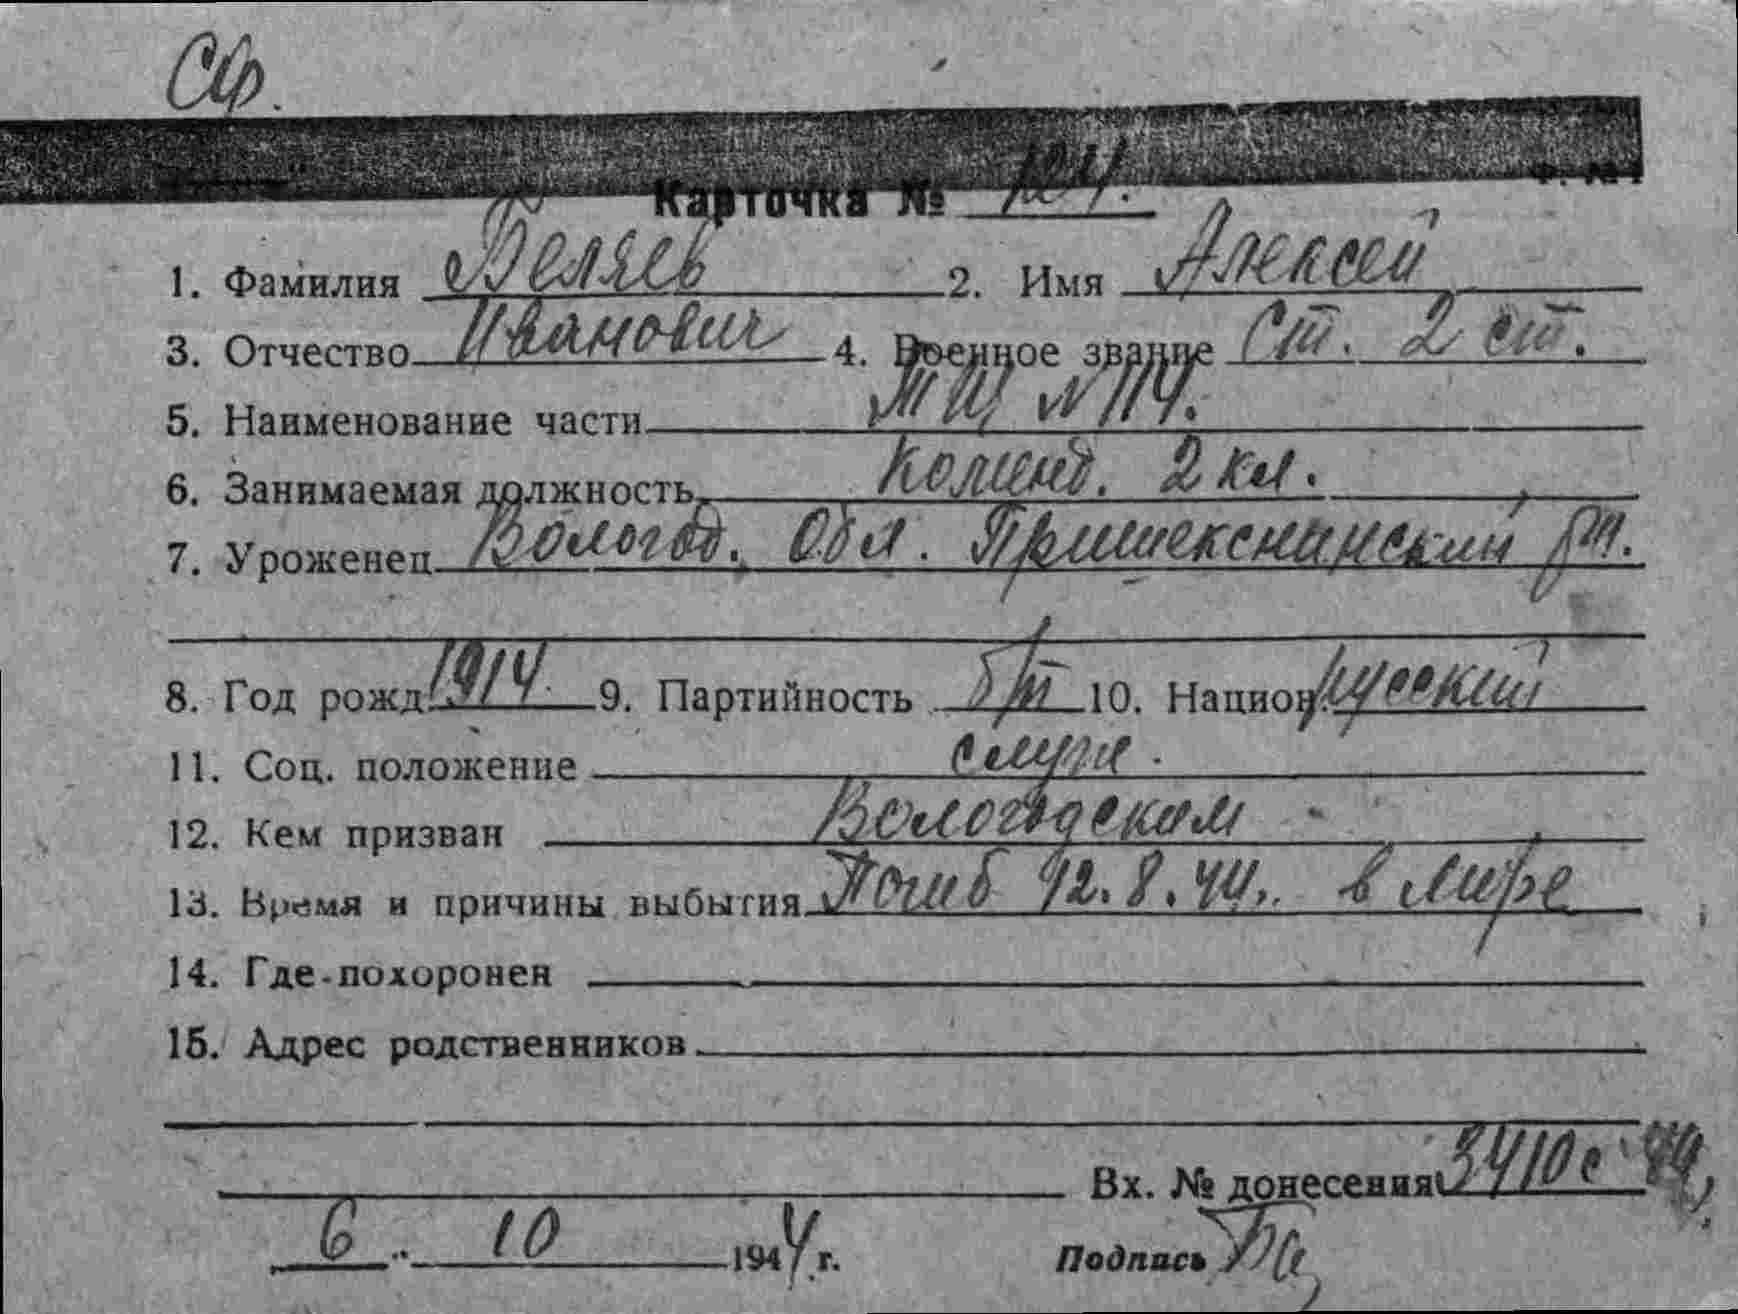 СФ.
Карточка № 124.
1. Фамилия Беляев 2. Имя Алексей
3. Отчество Иванович 4. Военное звание Ст. 2 ст.
5. Наименование части ТЩ №114.
6. Занимаемая должность Команд. 2 кл.
7. Уроженец Вологод. Обл. Пришекснинский
8. Год рожд. 1914 9. Партийность б/п 10. Национ. русский
11. Соц. положение служ.
12. Кем призван Вологодским
13. Время и причины выбытия Погиб 12.8.44. в море
14. Где похоронен
15. Адрес родственников
Вх. № донесения 3410с 44
6 10 1944 г. Подпись